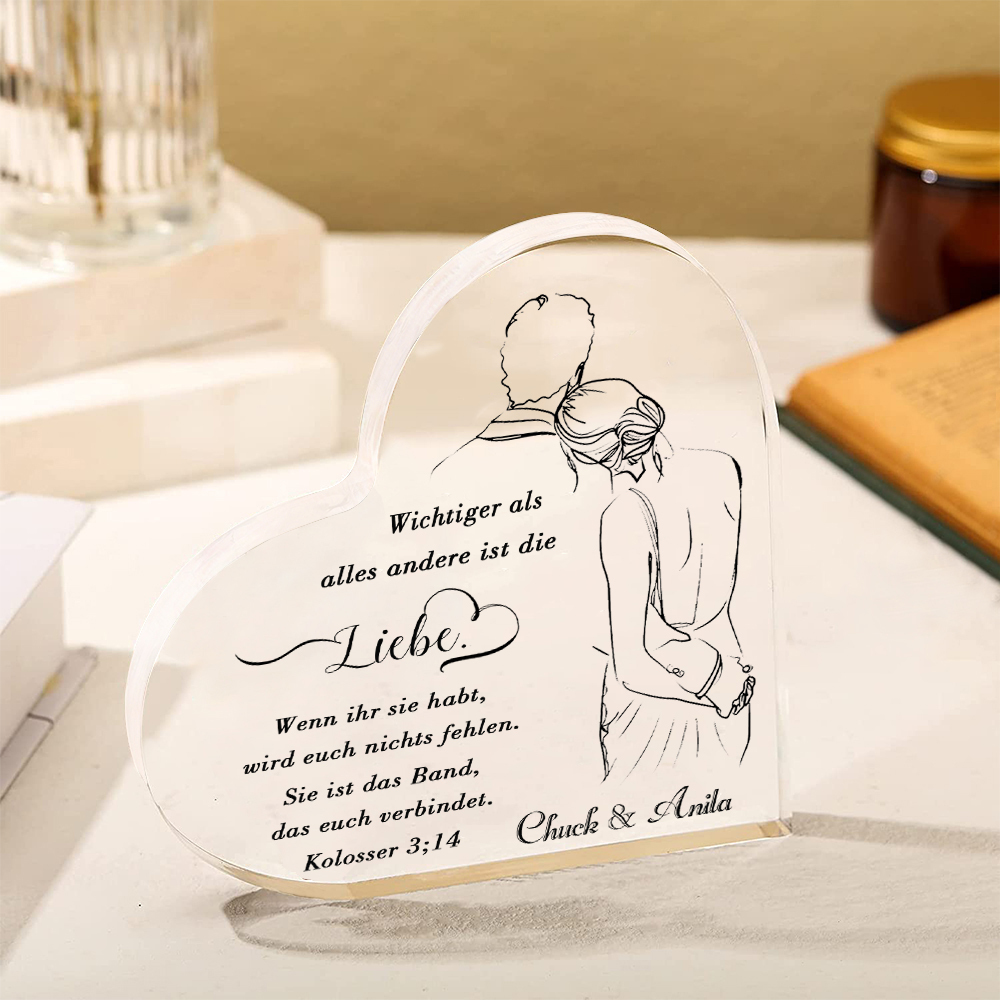 Wichtiger als
alles andere ist die
Liebe.
Wenn ihr sie habt,
wird euch nichts fehlen.
Sie ist das Band,
das euch verbindet.
Kolosser 3;14
Chuck & Anila